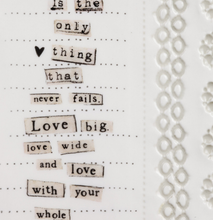 is the
only
♥ thing
that
never fails.
Love big.
love wide
and love
with your
whole